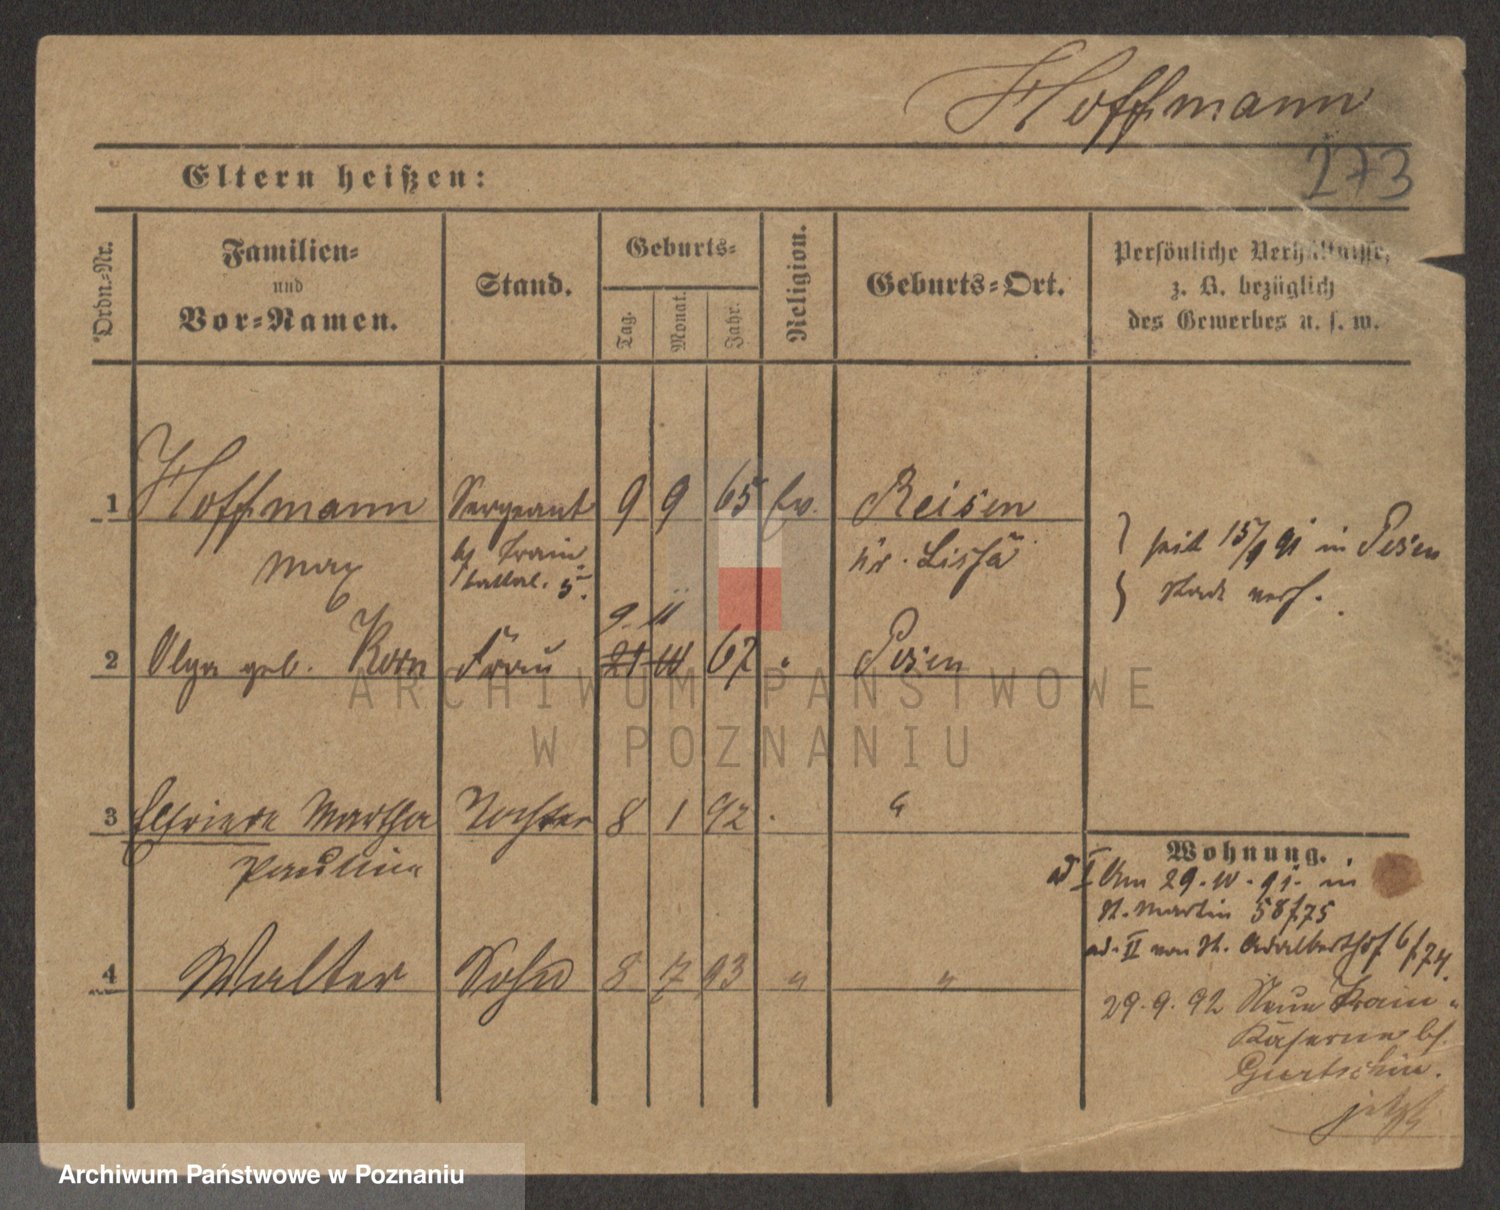 Hoffmann
273
Eltern heißen:
Ordn.-Nr.
Familien-
und
Vor-Namen.
Stand.
Geburts-
Tag.
Monat.
Jahr.
Religion.
Geburts-Ort.
Persönliche Verhältnisse,
z. B. bezüglich
des Gewerbes u. s. w.
1 Hoffmann Sergeant 9 9 65 Ev. Reisen
Max
Train
Battal. 5.
Kr. Lissa
seit 15/9 91 in Posen
Stadt verh.
9 11
2 Olga geb. Korn Frau 21 10 67 " Posen
3 Elfriede Martha Tochter 8 1 92 "
Pauline
4 Walter Sohn 8 7 93 " "
Wohnung.
ad I Am 29.10.91. in
St. Martin 58/75
ad. II von St. Adalberthof 6/74.
29.9.92 Neue Train-
Kaserne bei
Gurtschin.
jetzt
ARCHIWUM PAŃSTWOWE
W POZNANIU
Archiwum Państwowe w Poznaniu